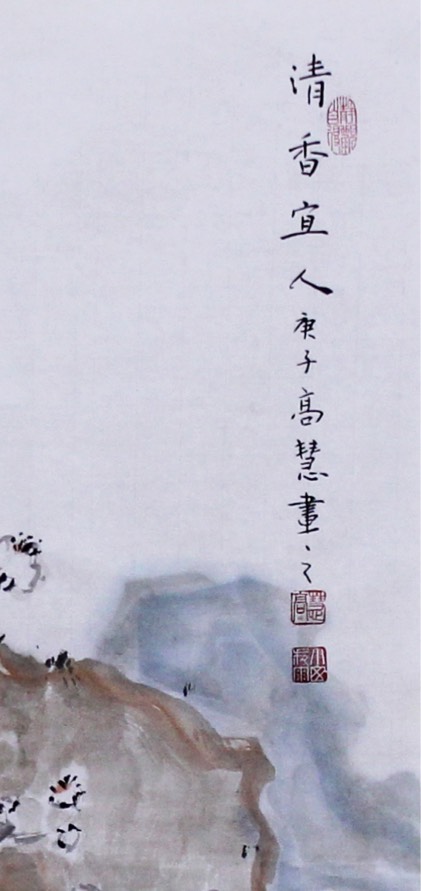 清香宜人庚子高慧畫之
高慧